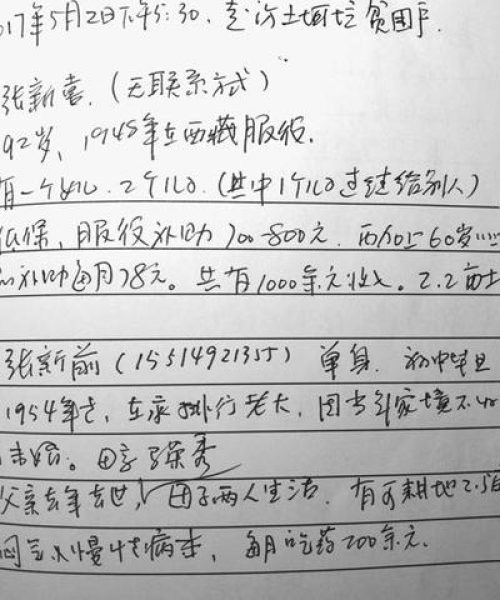 017年5月2日下午5:30.走访土坷垃贫困户.
张新喜.(无联系方式)
92岁、1945年在西藏服役.
有一个女儿.2个儿子.(其中1个儿子过继给别人)
低保、服役补助700-800元.再加上60岁以
补助每月78元。共有1000余元收入。2.2亩土
张新前(15514921355) 单身.初中毕业
1954年生,在家排行老大,因当年家境不好
未婚。母亲 荣秀
父亲去年去世,母子两人生活.有可耕地2.5亩
慢性病,每月吃药200余元.